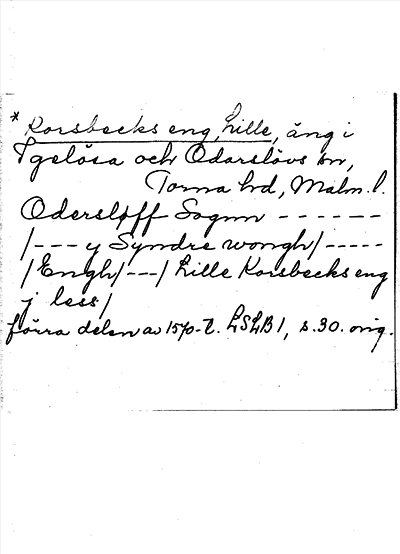 * Korsbecks eng, Lille, äng i
Igelösa och Odarslövs sn,
Torna hd, Malm. l.
Odersløff Sognn ------
/--- y Syndre wongh/-----
/Engh/---/ Lille Korsbecks eng
j less/
förra delen av 1570-t. LSLB 1, s. 30. orig.